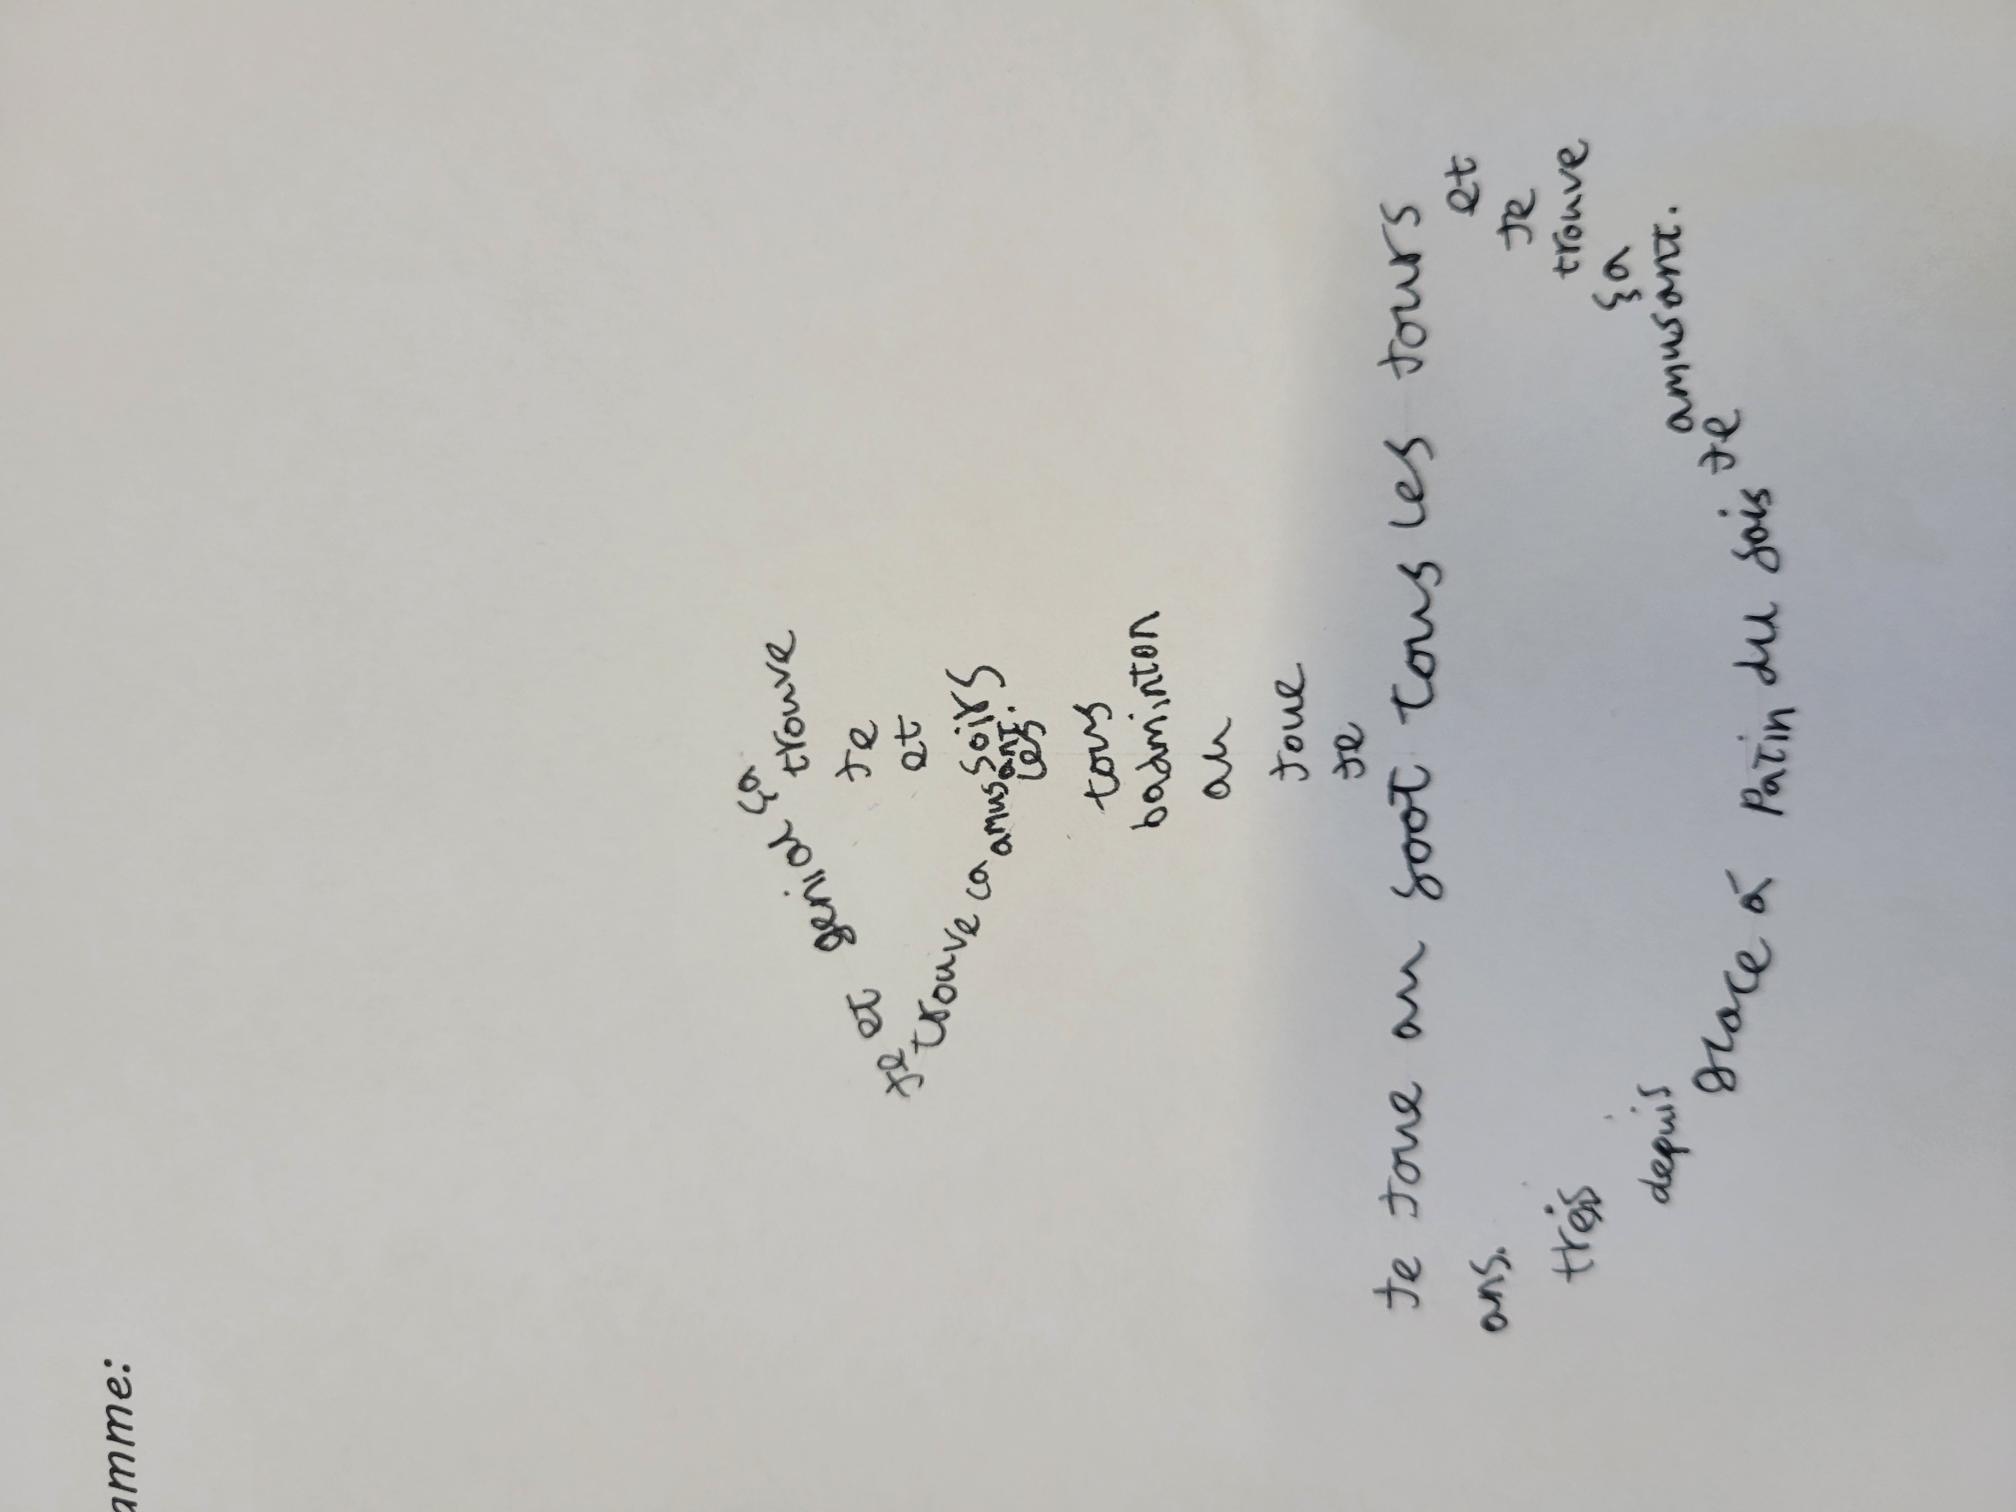 amme:
Je joue au foot tous les jours
et
je
trouve
ça
amusant.
Je
fais
du
Patin
à
glace
depuis
tréis
ans.
Je
joue
au
badminton
tous
les
soirs
et
je
trouve
ça
genial
et
je
trouve
ca
amusant.